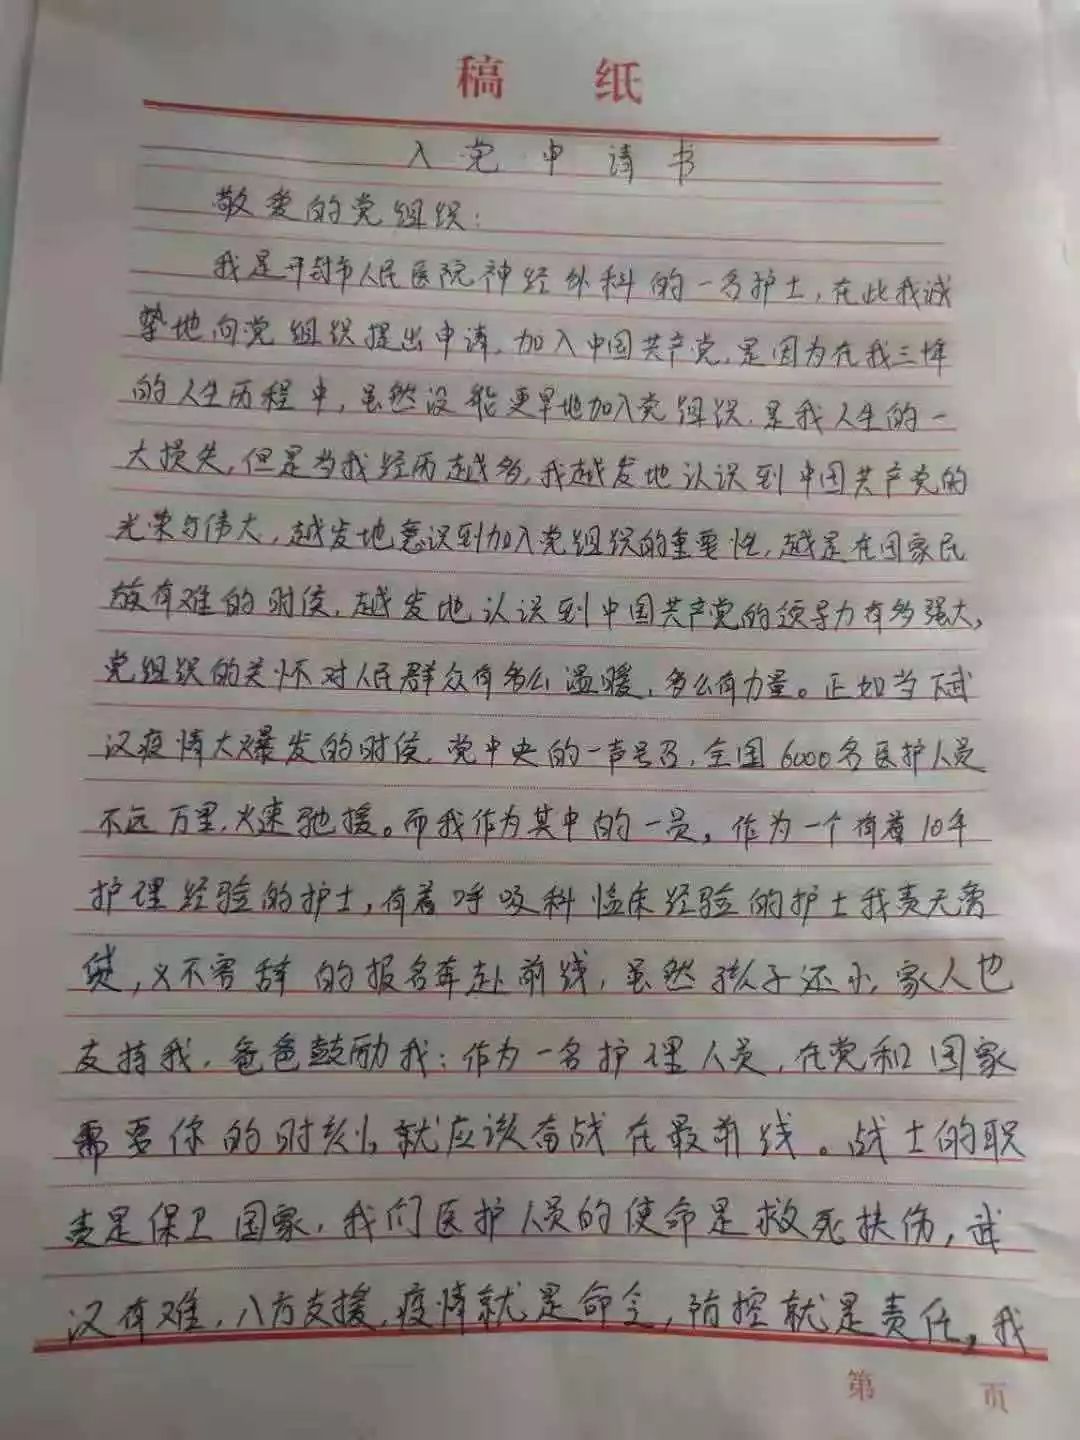 稿 纸
入党申请书
敬爱的党组织:
我是开封市人民医院神经外科的一名护士,在此我诚
挚地向党组织提出申请,加入中国共产党,是因为在我三十年
的人生历程中,虽然没能更早地加入党组织,是我人生的一
大损失,但是当我经历越多,我越发地认识到中国共产党的
光荣与伟大,越发地意识到加入党组织的重要性,越是在国家民
族有难的时侯,越发地认识到中国共产党的领导力有多强大,
党组织的关怀对人民群众有多么温暖,多么有力量。正如当下武
汉疫情大爆发的时侯,党中央的一声号召,全国6000名医护人员
不远万里,火速驰援。而我作为其中的一员,作为一个有着10年
护理经验的护士,有着呼吸科临床经验的护士我责无旁
贷,义不容辞的报名奔赴前线,虽然孩子还小,家人也
支持我,爸爸鼓励我:作为一名护理人员,在党和国家
需要你的时刻,就应该奋战在最前线。战士的职
责是保卫国家,我们医护人员的使命是救死扶伤,武
汉有难,八方支援,疫情就是命令,防控就是责任,我
第 页